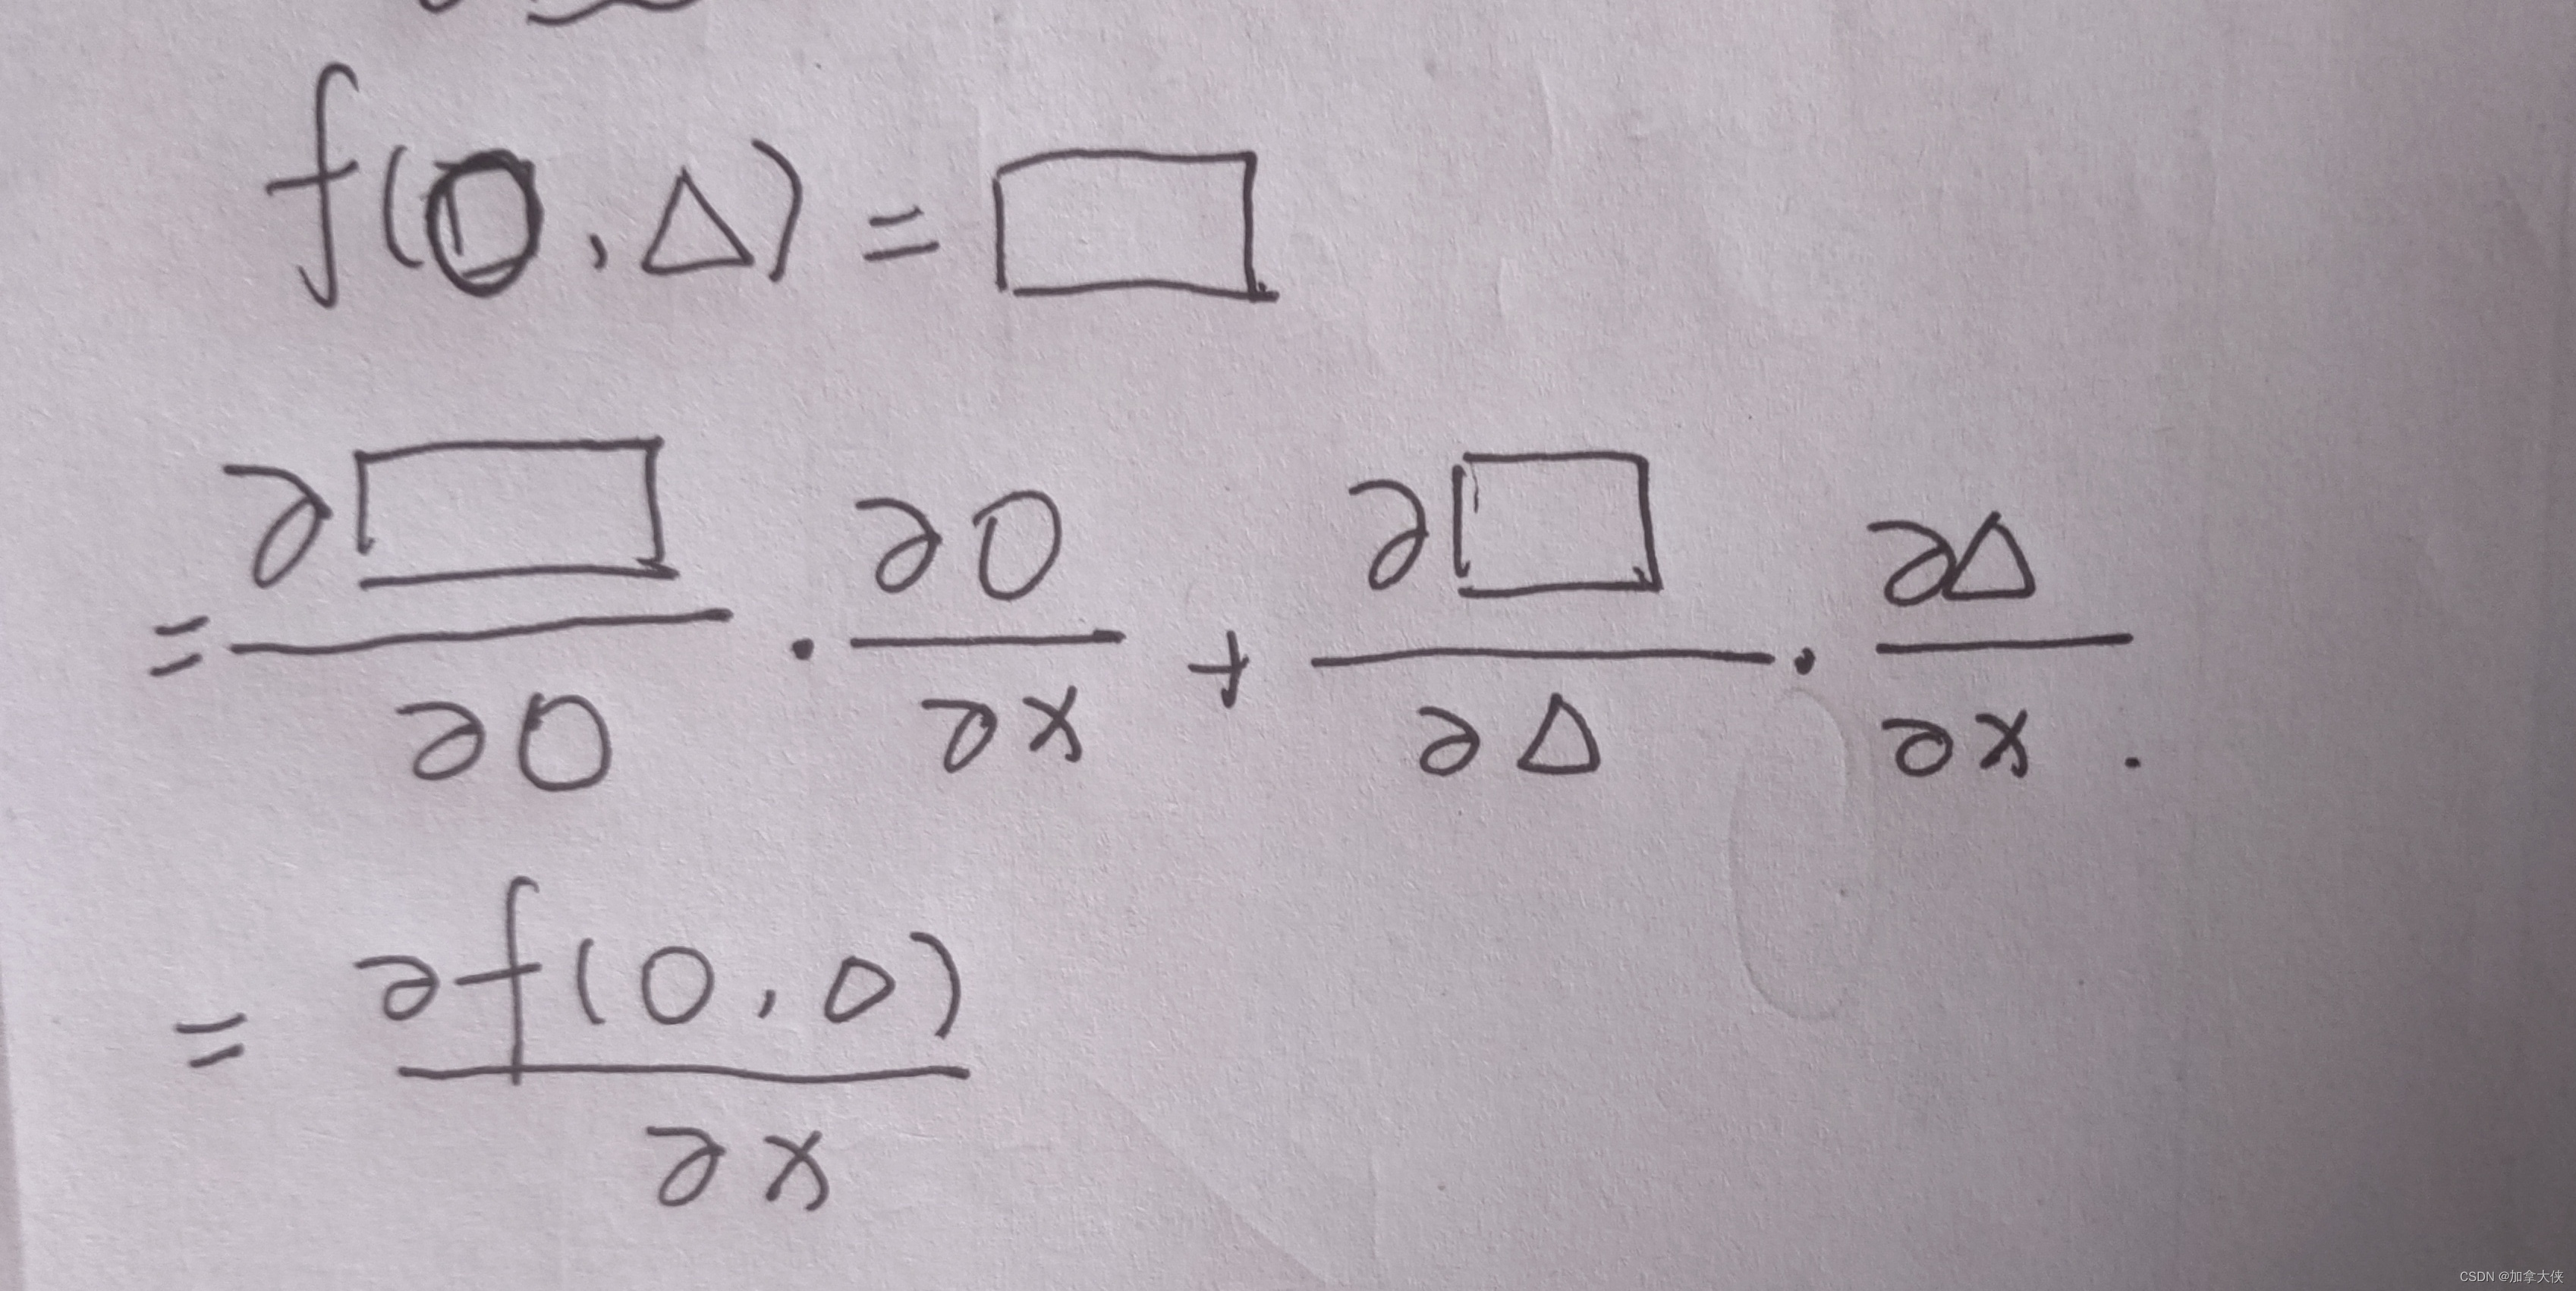 f(○,△)=□
=∂□/∂○·∂○/∂x+∂□/∂△·∂△/∂x.
=∂f(○,△)/∂x
CSDN @加拿大侠